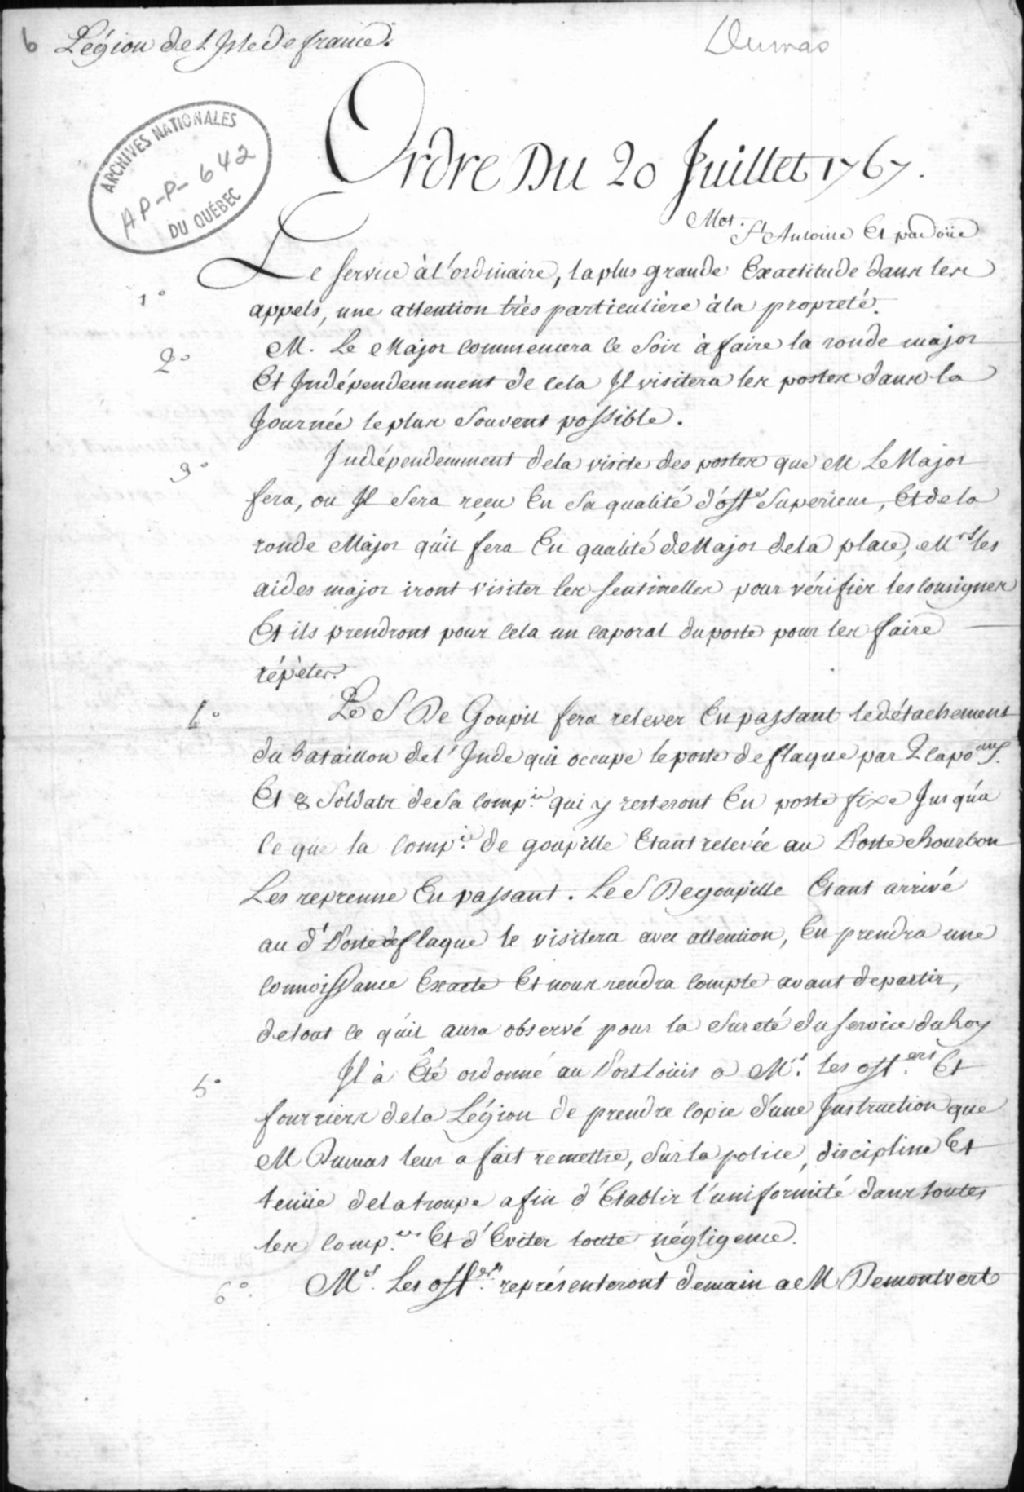 6 Légion de L'Isle De france.
Dumas
ARCHIVES NATIONALES
AP-P-642
DU QUÉBEC
Ordre Du 20 Juillet 1767.
Mot. St Antoine Et padoüe
1° Le service à l'ordinaire, la plus grande Exactitude dans les
appels, une attention très particulière à la propreté.
2° M. Le Major commencera ce soir à faire la ronde major
Et Indépendemment de cela Il visitera les postes dans la
Journée le plus souvent possible.
3° Indépendemment de la visite des postes que M Le Major
fera, ou Il sera reçu En sa qualité d'offer Superieur, Et de la
ronde Major qu'il fera En qualité de Major de la place, Mrs les
aides major iront visiter les sentinelles pour vérifier les consignes
Et ils prendront pour cela un caporal du poste pour les faire
répèter.
4° Le S De Goupil fera relever En passant le détachement
du bataillon de l'Inde qui occupe le poste de flaque par 2 capoaux.
Et 8 Soldats de Sa compie qui y resteront En poste fixe Jusqu'a
ce que la compie de goupille Etant relevée au Poste Bourbon
Les reprenne En passant. Le S De goupille Etant arrivé
au dt Poste de flaque le visitera avec attention, En prendra une
connoissance Exacte Et nous rendra compte avant de partir,
de tout ce qu'il aura observé pour la sureté du service du Roy
5° Il à Eté ordonné au Port louis a Mrs. les offers. Et
fourriers de la Légion de prendre copie d'une Instruction que
M Dumas leur a fait remettre, sur la police, discipline Et
tenüe de la troupe afin d'Etablir l'uniformité dans toutes
les compies. Et d'Eviter toutte négligence.
6° Mrs. Les offers. représenteront demain a M Demontvert